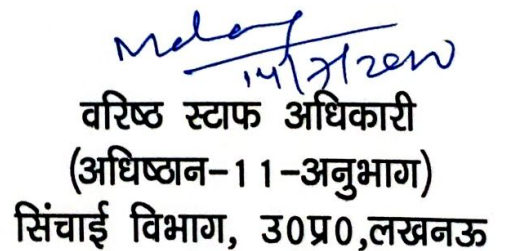 14/7/2020
वरिष्ठ स्टाफ अधिकारी
(अधिष्ठान-11-अनुभाग)
सिंचाई विभाग, उ0प्र0,लखनऊ